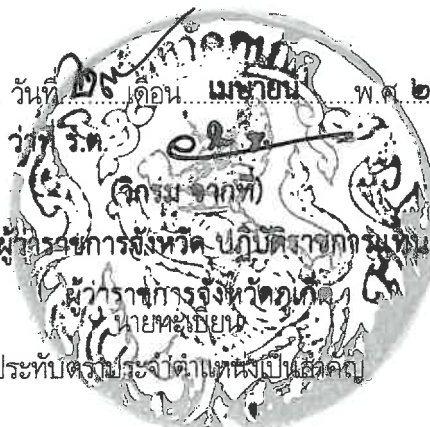 วันที่ ๒๙ เดือน เมษายน พ.ศ. ๒
ว่าที่ ร.ต.
(วิกรม จากที่)
ผู้ว่าราชการจังหวัด ปฏิบัติราชการแทน
ผู้ว่าราชการจังหวัดภูเก็ต
นายทะเบียน
ประทับตราประจำตำแหน่งเป็นสำคัญ